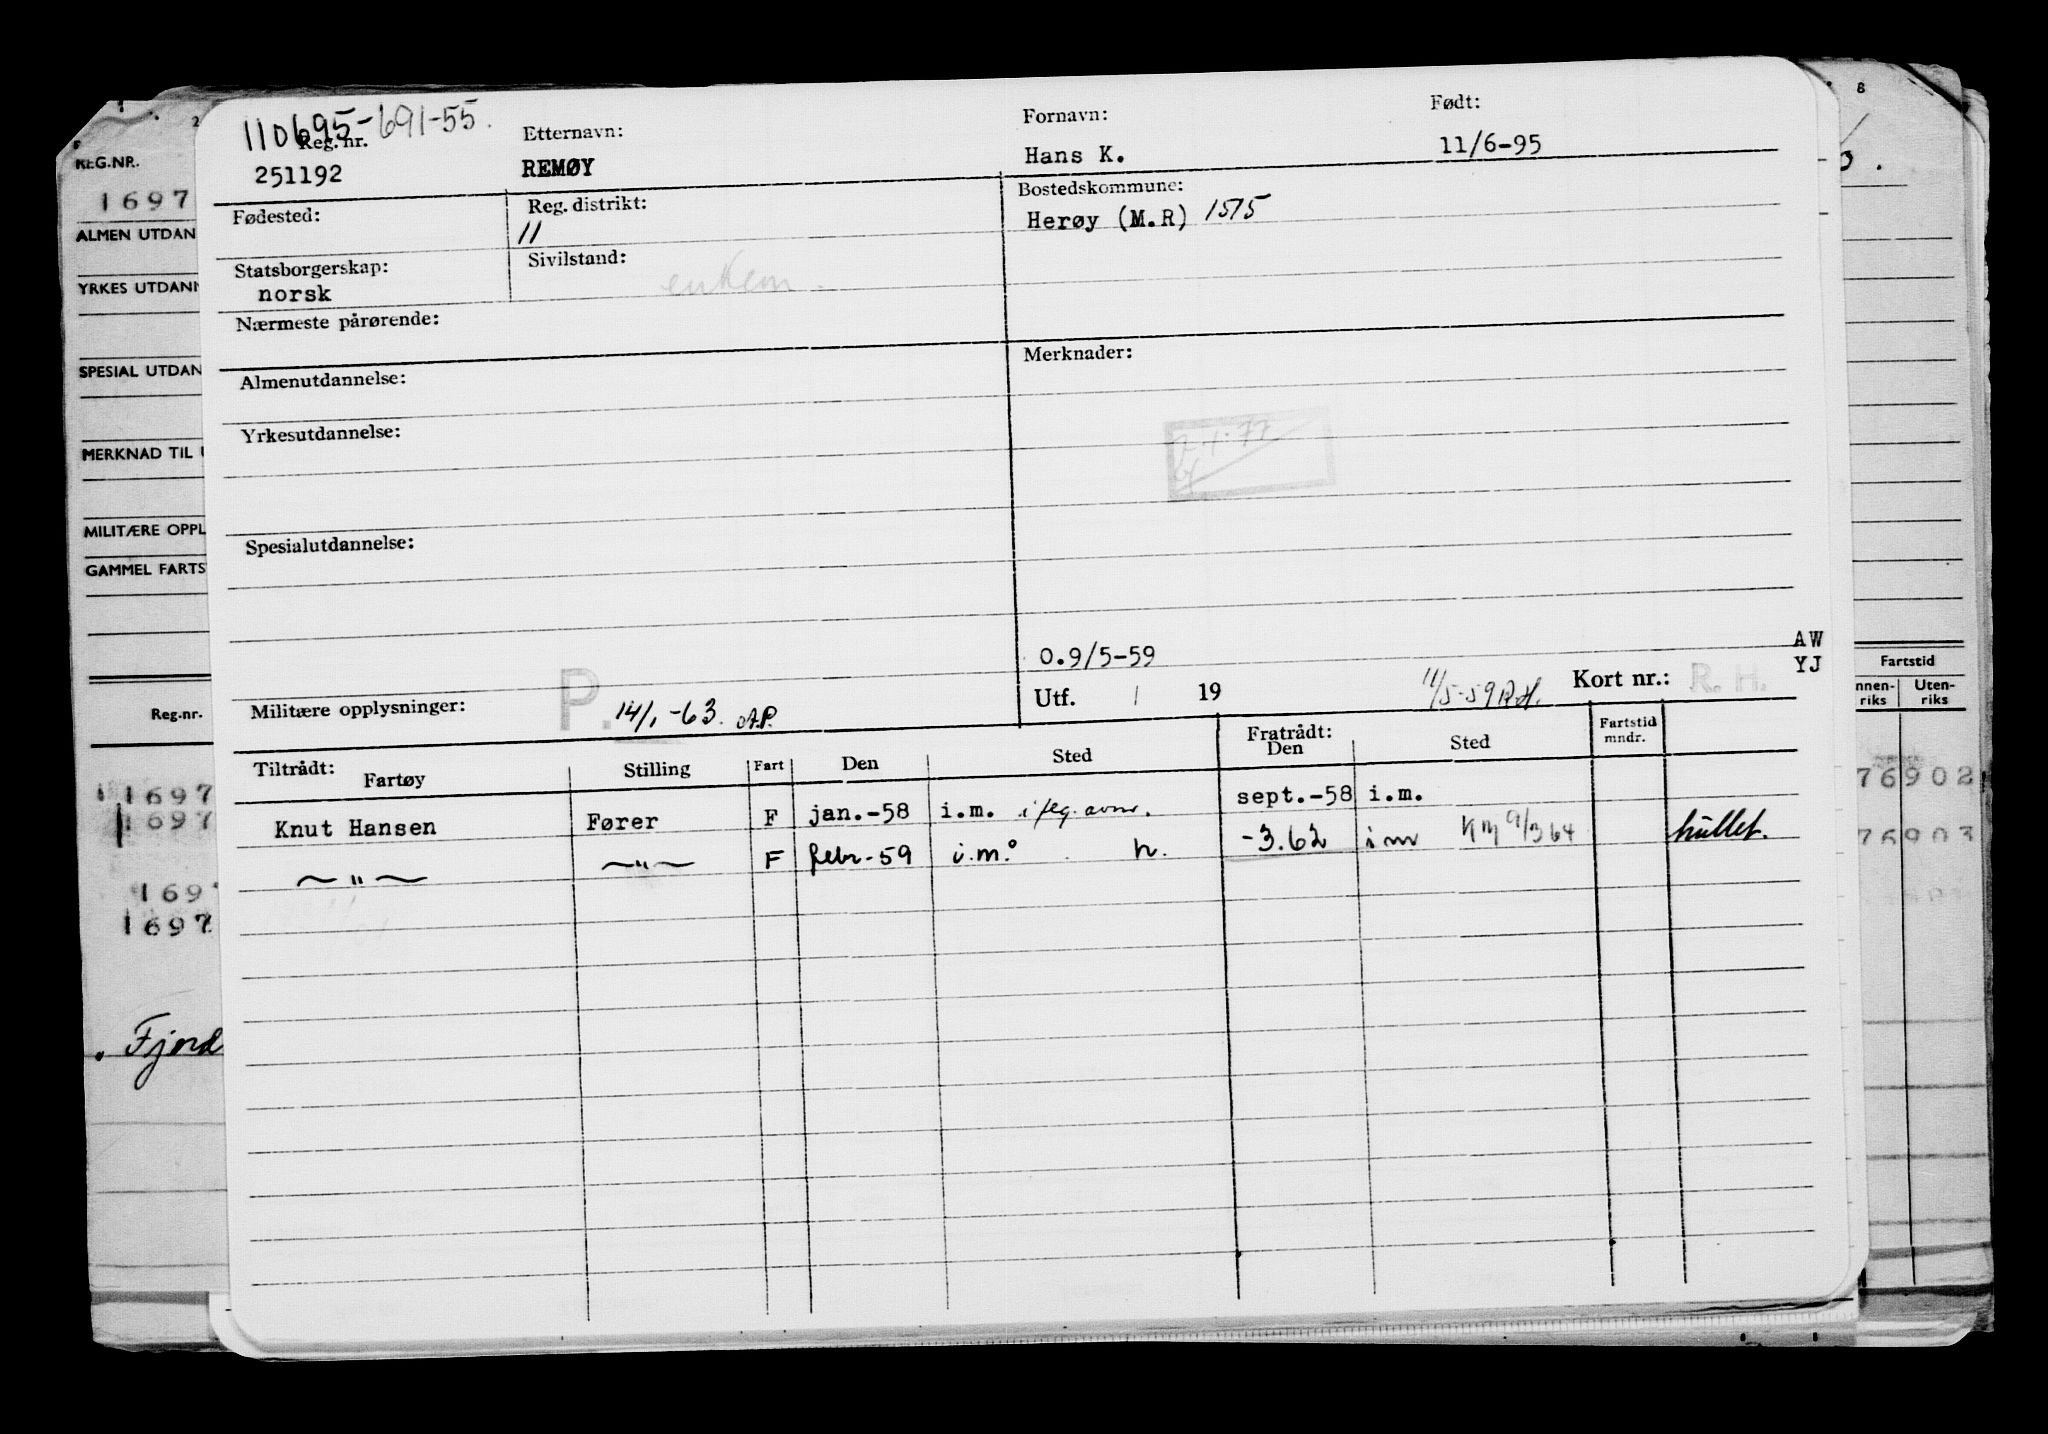 110695-691-55.
Reg. nr. Etternavn: Fornavn: Født:
251192 REMØY Hans K. 11/6-95
Fødested: Reg. distrikt: Bostedskommune:
11 Herøy (M.R) 1515
Statsborgerskap: Sivilstand:
norsk
Nærmeste pårørende:
Merknader:
Almenutdannelse:
Yrkesutdannelse:
Spesialutdannelse:
O.9/5-59
AW
YJ
Utf. 19 11/5-59 R.H. Kort nr.: R. H.
Militære opplysninger: P. 14/1-63. A.P.
Tiltrådt: Fratrådt:
Fartøy Stilling Fart Den Sted Den Sted Fartstid mndr.
Knut Hansen Fører F jan.-58 i.m. sept.-58 i.m.
— " — — " — F febr.-59 i.m. -3.62 i m 9/3 64 hullet.
REG.NR.
1697
ALMEN UTDAN
YRKES UTDANN
SPESIAL UTDAN
MERKNAD TIL U
MILITÆRE OPPL
GAMMEL FARTS
Reg.nr.
1697
1697
169
1697
Fjord
2
8
Fartstid
nnen-riks Uten-riks
76902
76903